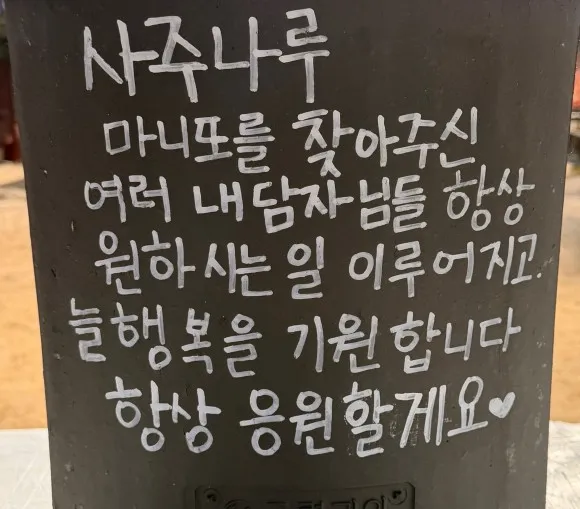 사주나루
마니또를 찾아주신
여러 내담자님들 항상
원하시는 일 이루어지고.
늘 행복을 기원합니다
항상 응원할게요♥